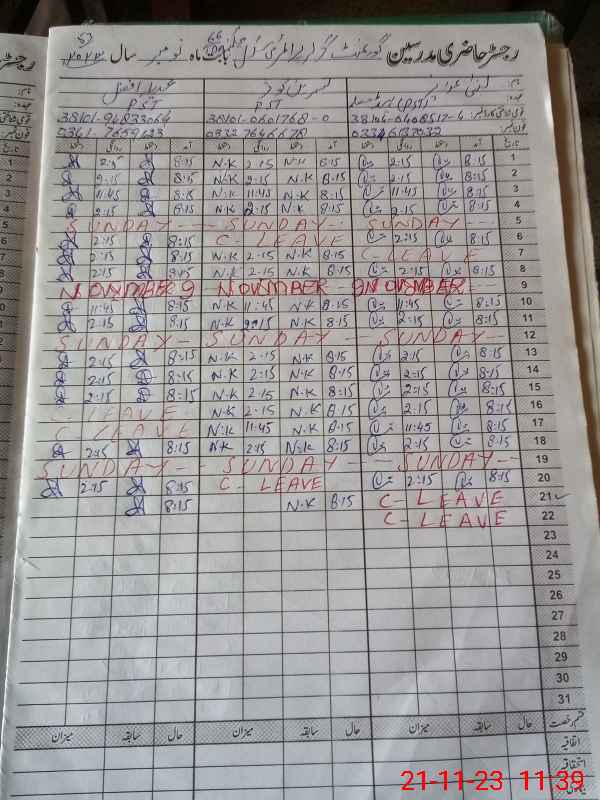 رجسٹر حاضری مدرسین گورنمنٹ گرلز پرائمری سکول بابت ماہ نومبر سال ۲۰۲۳
نام:
عہدہ: PST PST (PST)
38104-0408517-4 38101-0601768-0 38101-9483306-4
فون نمبر: 0332 7646678 0341-7659423
تاریخ آمد دستخط روانگی دستخط آمد دستخط روانگی دستخط آمد دستخط روانگی دستخط
1 8:15 2:15 8:15 N·K 2:15 N·K 8:15 2:15
2 8:15 2:15 8:15 N·K 2:15 N·K 8:15 2:15
3 8:15 11:45 8:15 N·K 11:45 N·K 8:15 11:45
4 8:15 2:15 8:15 N·K 2:15 N·K 8:15 2:15
5 SUNDAY SUNDAY SUNDAY
6 8:15 2:15 C-LEAVE 8:15 2:15
7 C-LEAVE 8:15 N·K 2:15 N·K 8:15 2:15
8 8:15 2:15 8:15 N·K 2:15 N·K 8:15 2:15
9 9 NOVMBER NOVMBER NOVMBER 9
10 8:15 11:45 8:15 N·K 11:45 N·K 8:15 11:45
11 8:15 2:15 8:15 N·K 2:15 N·K 8:15 2:15
12 SUNDAY SUNDAY SUNDAY
13 8:15 2:15 8:15 N·K 2:15 N·K 8:15 2:15
14 8:15 2:15 8:15 N·K 2:15 N·K 8:15 2:15
15 8:15 2:15 8:15 N·K 2:15 N·K 8:15 2:15
16 8:15 2:15 8:15 N·K 2:15 N·K C-LEAVE
17 8:15 11:45 8:15 N·K 11:45 N·K C-LEAVE
18 8:15 2:15 8:15 N·K 2:15 N·K 8:15 2:15
19 SUNDAY SUNDAY SUNDAY
20 8:15 2:15 C-LEAVE 8:15 2:15
21 C-LEAVE 8:15 N·K 8:15
22 C-LEAVE
23
24
25
26
27
28
29
30
31
قسم رخصت حال سابقہ میزان حال سابقہ میزان حال سابقہ میزان
اتفاقیہ
استحقاقیہ
21-11-23 11:39